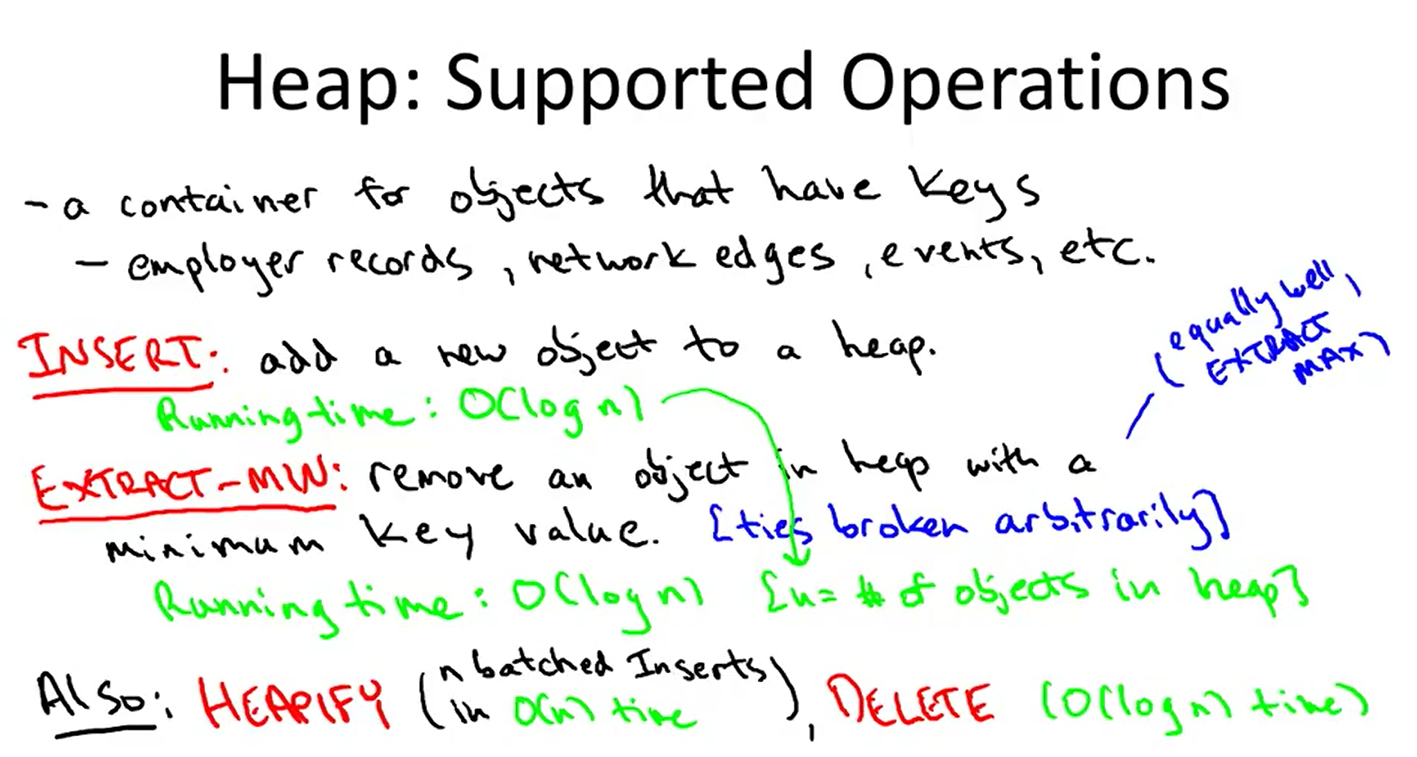 Heap: Supported Operations
- a container for objects that have keys
- employer records, network edges, events, etc.
INSERT: add a new object to a heap.
Running time: O(log n)
(equally well,
EXTRACT
MAX)
EXTRACT-MIN: remove an object in heap with a
minimum key value. [ties broken arbitrarily]
Running time: O(log n) [n = # of objects in heap]
Also: HEAPIFY (n batched Inserts
in O(n) time), DELETE (O(log n) time)